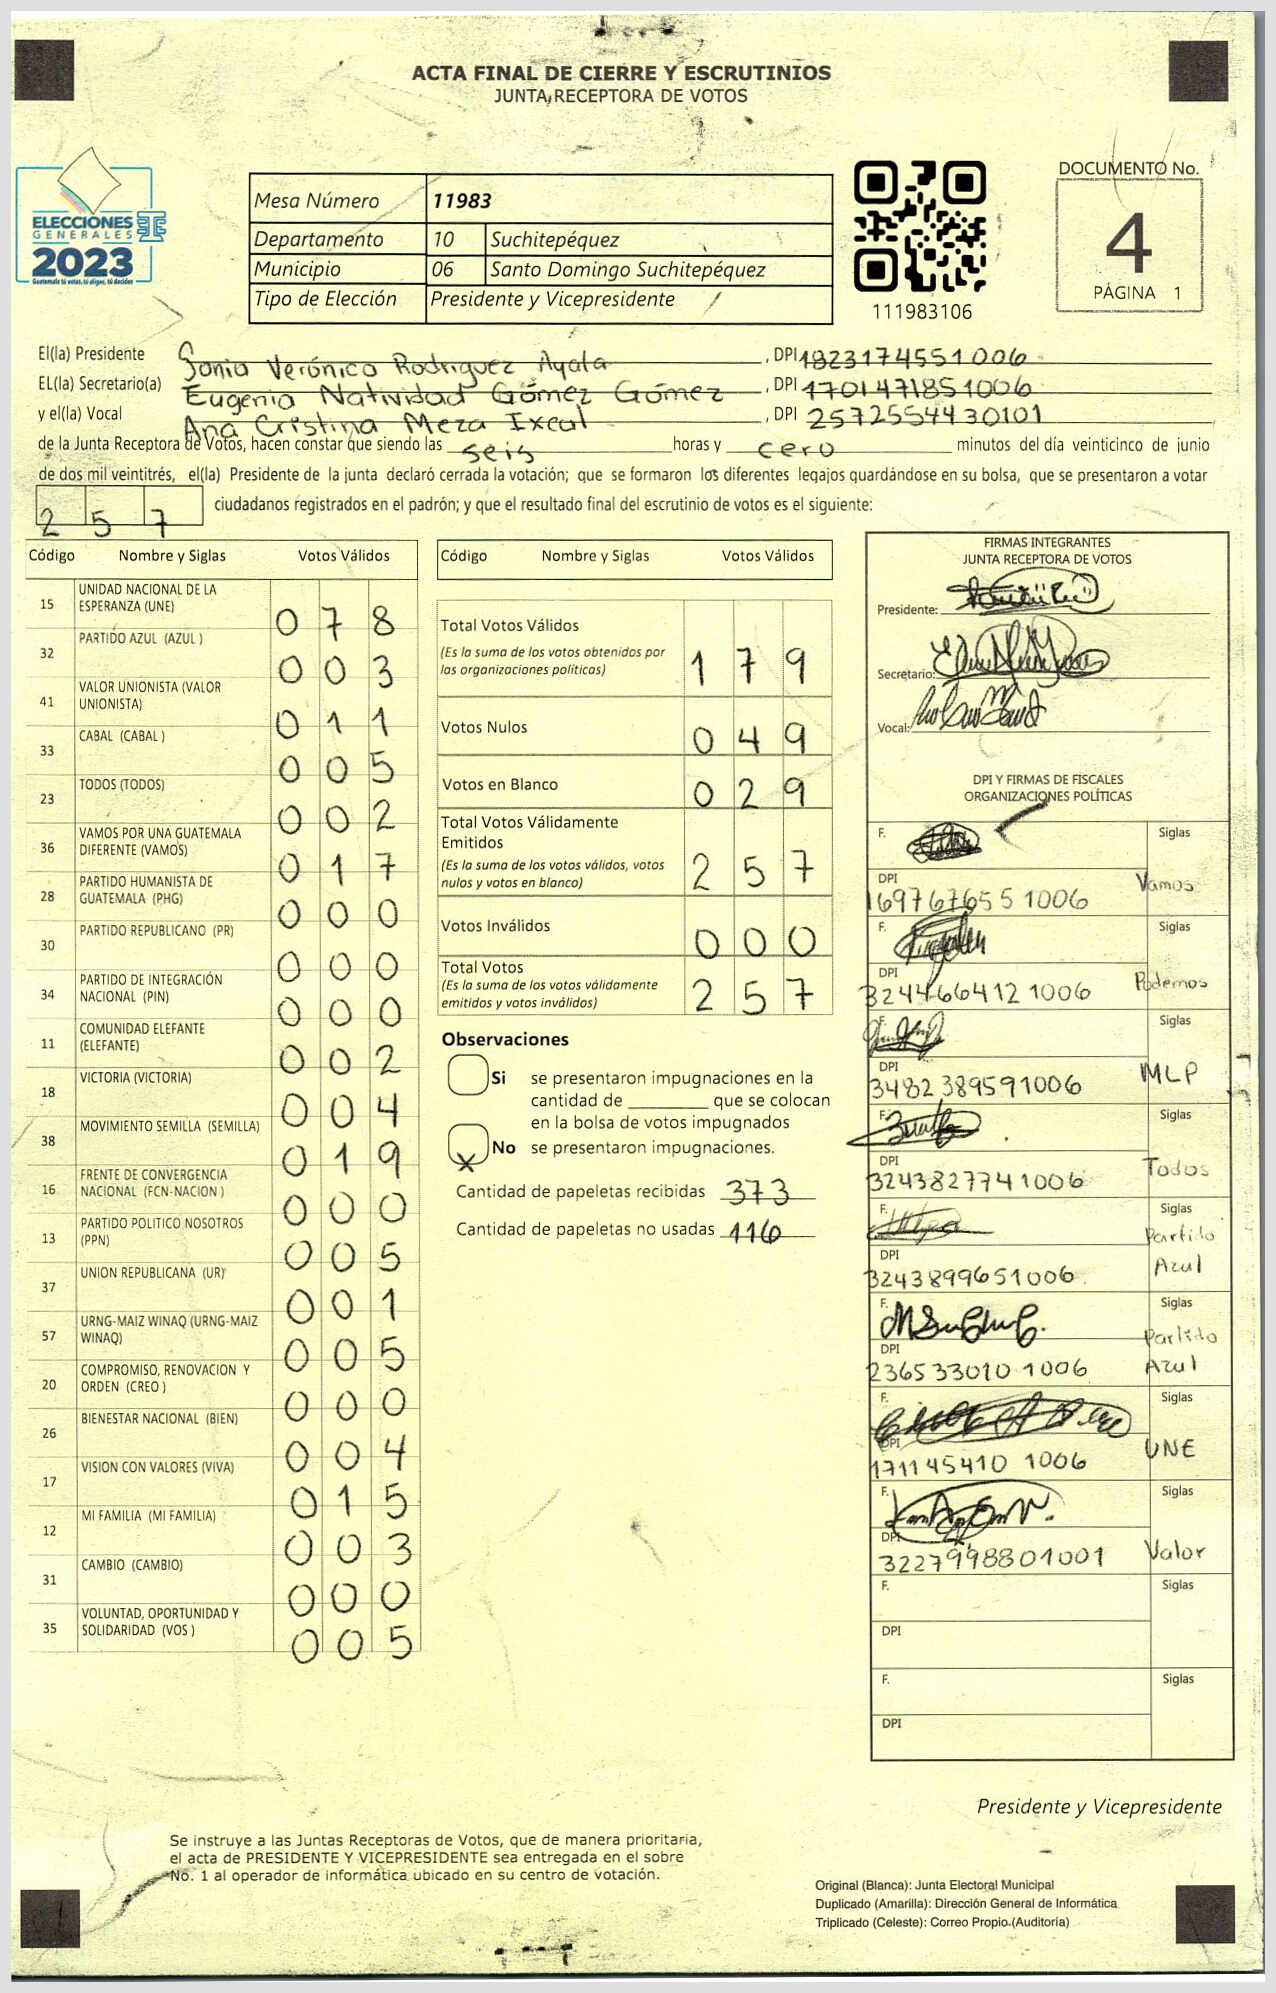 ACTA FINAL DE CIERRE Y ESCRUTINIOS
JUNTA RECEPTORA DE VOTOS
ELECCIONES
GENERALES
2023
Guatemala tú votas, tú eliges, tú decides
Mesa Número 11983
Departamento 10 Suchitepéquez
Municipio 06 Santo Domingo Suchitepéquez
Tipo de Elección Presidente y Vicepresidente
111983106
DOCUMENTO No.
4
PÁGINA 1
El(la) Presidente Sonia Verónica Rodriguez Ayala, DPI 1823174551006
EL(la) Secretario(a) Eugenia Natividad Gómez Gómez, DPI 1701471851006
y el(la) Vocal Ana Cristina Meza Ixcal, DPI 2572554430101
de la Junta Receptora de Votos, hacen constar que siendo las seis horas y cero minutos del día veinticinco de junio
de dos mil veintitrés, el(la) Presidente de la junta declaró cerrada la votación; que se formaron los diferentes legajos guardándose en su bolsa, que se presentaron a votar
257 ciudadanos registrados en el padrón; y que el resultado final del escrutinio de votos es el siguiente:
Código Nombre y Siglas Votos Válidos
15 UNIDAD NACIONAL DE LA ESPERANZA (UNE) 078
32 PARTIDO AZUL (AZUL ) 003
41 VALOR UNIONISTA (VALOR UNIONISTA) 011
33 CABAL (CABAL ) 005
23 TODOS (TODOS) 002
36 VAMOS POR UNA GUATEMALA DIFERENTE (VAMOS) 017
28 PARTIDO HUMANISTA DE GUATEMALA (PHG) 000
30 PARTIDO REPUBLICANO (PR) 000
34 PARTIDO DE INTEGRACIÓN NACIONAL (PIN) 000
11 COMUNIDAD ELEFANTE (ELEFANTE) 002
18 VICTORIA (VICTORIA) 004
38 MOVIMIENTO SEMILLA (SEMILLA) 019
16 FRENTE DE CONVERGENCIA NACIONAL (FCN-NACION ) 000
13 PARTIDO POLITICO NOSOTROS (PPN) 005
37 UNION REPUBLICANA (UR) 001
57 URNG-MAIZ WINAQ (URNG-MAIZ WINAQ) 005
20 COMPROMISO, RENOVACION Y ORDEN (CREO ) 000
26 BIENESTAR NACIONAL (BIEN) 004
17 VISION CON VALORES (VIVA) 015
12 MI FAMILIA (MI FAMILIA) 003
31 CAMBIO (CAMBIO) 000
35 VOLUNTAD, OPORTUNIDAD Y SOLIDARIDAD (VOS ) 005
Código Nombre y Siglas Votos Válidos
Total Votos Válidos 179
(Es la suma de los votos obtenidos por
las organizaciones políticas)
Votos Nulos 049
Votos en Blanco 029
Total Votos Válidamente
Emitidos 257
(Es la suma de los votos válidos, votos
nulos y votos en blanco)
Votos Inválidos 000
Total Votos 257
(Es la suma de los votos válidamente
emitidos y votos inválidos)
Observaciones
Si se presentaron impugnaciones en la
cantidad de ________ que se colocan
en la bolsa de votos impugnados
X No se presentaron impugnaciones.
Cantidad de papeletas recibidas 373
Cantidad de papeletas no usadas 116
FIRMAS INTEGRANTES
JUNTA RECEPTORA DE VOTOS
Presidente:
Secretario:
Vocal:
DPI Y FIRMAS DE FISCALES
ORGANIZACIONES POLÍTICAS
F. Siglas
DPI Vamos
1697676551006
F. Siglas
DPI Podemos
3244664121006
F. Siglas
DPI MLP
3482389591006
F. Siglas
DPI Todos
3243827741006
F. Siglas
DPI Partido Azul
3243899651006
F. Siglas
DPI Partido Azul
2365330101006
F. Siglas
DPI UNE
1711454101006
F. Siglas
DPI Valor
3227998801001
F. Siglas
DPI
F. Siglas
DPI
Presidente y Vicepresidente
Se instruye a las Juntas Receptoras de Votos, que de manera prioritaria,
el acta de PRESIDENTE Y VICEPRESIDENTE sea entregada en el sobre
No. 1 al operador de informática ubicado en su centro de votación.
Original (Blanca): Junta Electoral Municipal
Duplicado (Amarilla): Dirección General de Informática
Triplicado (Celeste): Correo Propio (Auditoría)